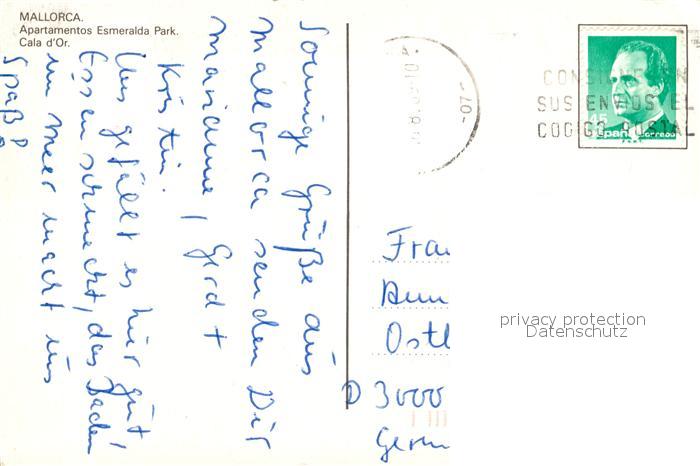 MALLORCA.
Apartamentos Esmeralda Park.
Cala d'Or.
Sonnige Grüße aus
Mallorca senden Dir
Marianne, Gerd +
Kristin.
Uns gefällt es hier gut
Essen schmeckt, das Baden
im Meer macht uns
Spaß!
CONSIGNE EN
SUS ENVIOS EL
CODIGO POSTAL
45
España correos
-07-
Frau
Ostl
D 3000
Germ
privacy protection
Datenschutz